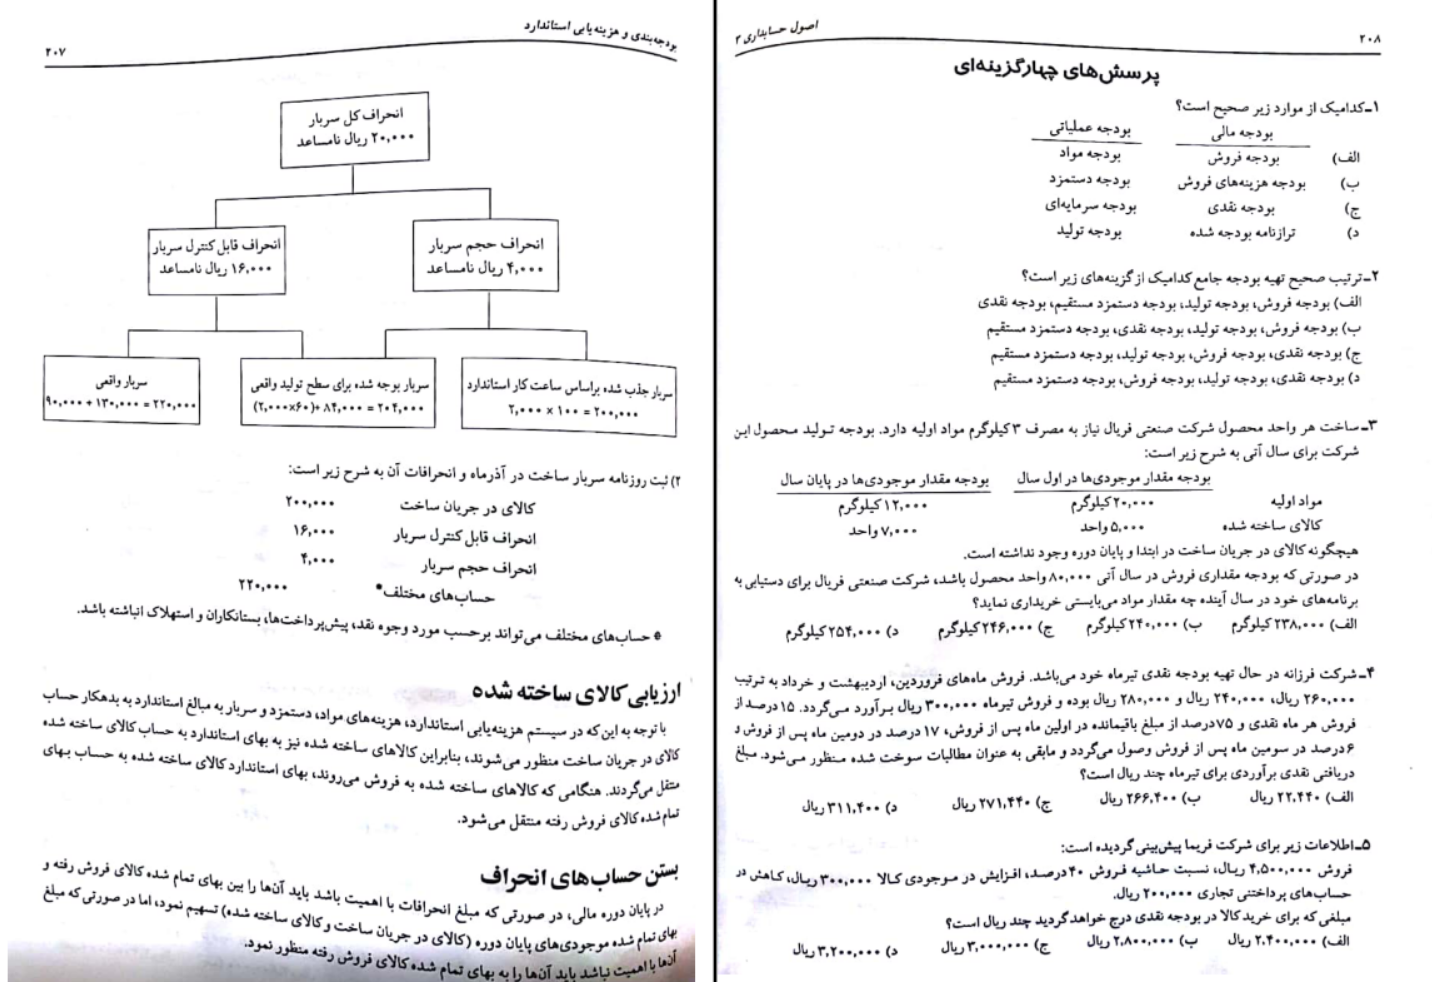 ۲۰۷
بودجه‌بندی و هزینه‌یابی استاندارد
انحراف کل سربار
۲۰,۰۰۰ ریال نامساعد
انحراف حجم سربار
۴,۰۰۰ ریال نامساعد
انحراف قابل کنترل سربار
۱۶,۰۰۰ ریال نامساعد
سربار جذب شده براساس ساعت کار استاندارد
۲,۰۰۰ × ۱۰۰ = ۲۰۰,۰۰۰
سربار بوجه شده برای سطح تولید واقعی
(۲,۰۰۰×۶۰)+ ۸۴,۰۰۰ = ۲۰۴,۰۰۰
سربار واقعی
۹۰,۰۰۰ + ۱۳۰,۰۰۰ = ۲۲۰,۰۰۰
۲) ثبت روزنامه سربار ساخت در آذرماه و انحرافات آن به شرح زیر است:
کالای در جریان ساخت ۲۰۰,۰۰۰
انحراف قابل کنترل سربار ۱۶,۰۰۰
انحراف حجم سربار ۴,۰۰۰
حساب‌های مختلف* ۲۲۰,۰۰۰
* حساب‌های مختلف می‌تواند برحسب مورد وجوه نقد، پیش‌پرداخت‌ها، بستانکاران و استهلاک انباشته باشد.
ارزیابی کالای ساخته شده
با توجه به این‌که در سیستم هزینه‌یابی استاندارد، هزینه‌های مواد، دستمزد و سربار به مبالغ استاندارد به بدهکار حساب
کالای در جریان ساخت منظور می‌شوند، بنابراین کالاهای ساخته شده نیز به بهای استاندارد به حساب کالای ساخته شده
منتقل می‌گردند. هنگامی که کالاهای ساخته شده به فروش می‌روند، بهای استاندارد کالای ساخته شده به حساب بهای
تمام شده کالای فروش رفته منتقل می‌شود.
بستن حساب‌های انحراف
در پایان دوره مالی، در صورتی که مبلغ انحرافات با اهمیت باشد باید آن‌ها را بین بهای تمام شده کالای فروش رفته و
بهای تمام شده موجودی‌های پایان دوره (کالای در جریان ساخت و کالای ساخته شده) تسهیم نمود، اما در صورتی که مبلغ
آن‌ها با اهمیت نباشد باید آن‌ها را به بهای تمام شده کالای فروش رفته منظور نمود.
۲۰۸
اصول حسابداری ۳
پرسش‌های چهارگزینه‌ای
۱ـ کدامیک از موارد زیر صحیح است؟
بودجه مالی بودجه عملیاتی
الف) بودجه فروش بودجه مواد
ب) بودجه هزینه‌های فروش بودجه دستمزد
ج) بودجه نقدی بودجه سرمایه‌ای
د) ترازنامه بودجه شده بودجه تولید
۲ـ ترتیب صحیح تهیه بودجه جامع کدامیک از گزینه‌های زیر است؟
الف) بودجه فروش، بودجه تولید، بودجه دستمزد مستقیم، بودجه نقدی
ب) بودجه فروش، بودجه تولید، بودجه نقدی، بودجه دستمزد مستقیم
ج) بودجه نقدی، بودجه فروش، بودجه تولید، بودجه دستمزد مستقیم
د) بودجه نقدی، بودجه تولید، بودجه فروش، بودجه دستمزد مستقیم
۳ـ ساخت هر واحد محصول شرکت صنعتی فریال نیاز به مصرف ۳ کیلوگرم مواد اولیه دارد. بودجه تولید محصول این
شرکت برای سال آتی به شرح زیر است:
بودجه مقدار موجودی‌ها در اول سال بودجه مقدار موجودی‌ها در پایان سال
مواد اولیه ۲۰,۰۰۰ کیلوگرم ۱۲,۰۰۰ کیلوگرم
کالای ساخته شده ۵,۰۰۰ واحد ۷,۰۰۰ واحد
هیچگونه کالای در جریان ساخت در ابتدا و پایان دوره وجود نداشته است.
در صورتی که بودجه مقداری فروش در سال آتی ۸۰,۰۰۰ واحد محصول باشد، شرکت صنعتی فریال برای دستیابی به
برنامه‌های خود در سال آینده چه مقدار مواد می‌بایستی خریداری نماید؟
الف) ۲۳۸,۰۰۰ کیلوگرم ب) ۲۴۰,۰۰۰ کیلوگرم ج) ۲۴۶,۰۰۰ کیلوگرم د) ۲۵۴,۰۰۰ کیلوگرم
۴ـ شرکت فرزانه در حال تهیه بودجه نقدی تیرماه خود می‌باشد. فروش ماه‌های فروردین، اردیبهشت و خرداد به ترتیب
۲۶۰,۰۰۰ ریال، ۲۴۰,۰۰۰ ریال و ۲۸۰,۰۰۰ ریال بوده و فروش تیرماه ۳۰۰,۰۰۰ ریال برآورد می‌گردد. ۱۵ درصد از
فروش هر ماه نقدی و ۷۵ درصد از مبلغ باقیمانده در اولین ماه پس از فروش، ۱۷ درصد در دومین ماه پس از فروش و
۶ درصد در سومین ماه پس از فروش وصول می‌گردد و مابقی به عنوان مطالبات سوخت شده منظور می‌شود. مبلغ
دریافتی نقدی برآوردی برای تیرماه چند ریال است؟
الف) ۲۲,۴۴۰ ریال ب) ۲۶۶,۴۰۰ ریال ج) ۲۷۱,۴۴۰ ریال د) ۳۱۱,۴۰۰ ریال
۵ـ اطلاعات زیر برای شرکت فریما پیش‌بینی گردیده است:
فروش ۴,۵۰۰,۰۰۰ ریال، نسبت حاشیه فروش ۴۰ درصد، افزایش در موجودی کالا ۳۰۰,۰۰۰ ریال، کاهش در
حساب‌های پرداختنی تجاری ۲۰۰,۰۰۰ ریال.
مبلغی که برای خرید کالا در بودجه نقدی درج خواهد گردید چند ریال است؟
الف) ۲,۴۰۰,۰۰۰ ریال ب) ۲,۸۰۰,۰۰۰ ریال ج) ۳,۰۰۰,۰۰۰ ریال د) ۳,۲۰۰,۰۰۰ ریال